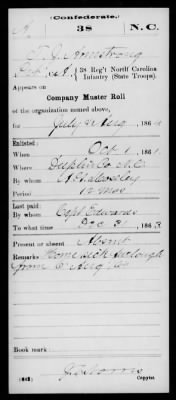 (Confederate.)
A 38 N.C.
T. J. Armstrong
Co. A, 38 Reg't North Carolina
Infantry (State Troops).
Appears on
Company Muster Roll
of the organization named above,
for July & Aug, 1864
Enlisted:
When Oct 1, 1861
Where Duplin Co N.C.
By whom
Period 12 mos
Last paid:
By whom Capt Edwards
To what time Dec 31, 1863
Present or absent Absent
Remarks Home sick furlough
from Aug
Book mark:
Copyist.